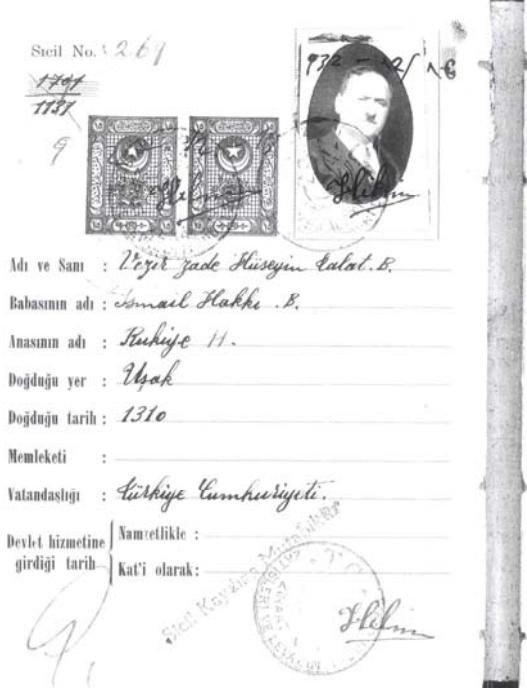 Sicil No. 269
1137
9
932
Adı ve Sanı : Vezir zade Hüseyin Talat. B.
Babasının adı : İsmail Hakkı .B.
Anasının adı : Rukiye H.
Doğduğu yer : Uşak
Doğduğu tarih : 1310
Memleketi :
Vatandaşlığı : Türkiye Cumhuriyeti.
Devlet hizmetine girdiği tarih
Namzetlikle :
Kat'i olarak :
Sicil Kaydına Mutabıktır